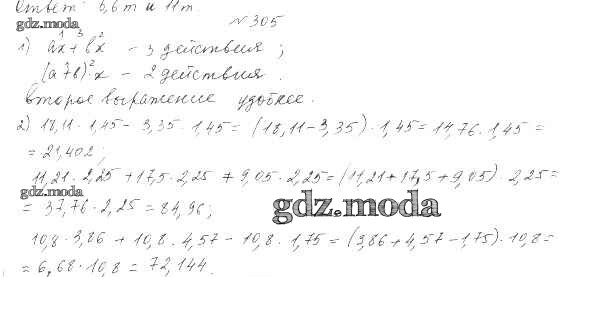 Ответ: 6,6 т и 11 т.
gdz.moda
№ 305
1) ax + bx - 3 действия ;
(a+b)·x - 2 действия.
второе выражение удобнее.
2) 18,11 · 1,45 - 3,35 · 1,45 = (18,11 - 3,35) · 1,45 = 14,76 · 1,45 =
= 21,402;
11,21 · 2,25 + 17,5 · 2,25 + 9,05 · 2,25 = (11,21 + 17,5 + 9,05) · 2,25 =
gdz.moda
= 37,76 · 2,25 = 84,96;
gdz.moda
10,8 · 3,86 + 10,8 · 4,57 - 10,8 · 1,75 = (3,86 + 4,57 - 1,75) · 10,8 =
= 6,68 · 10,8 = 72,144.